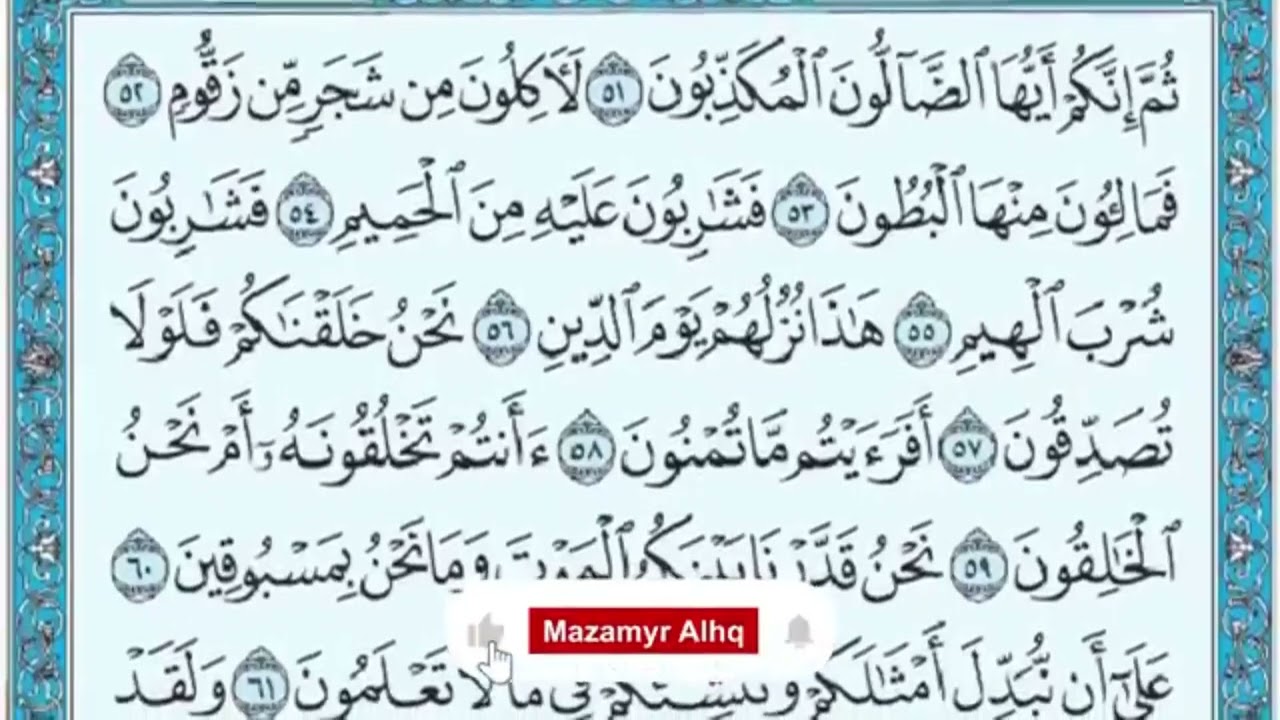 ثُمَّ إِنَّكُمْ أَيُّهَا ٱلضَّآلُّونَ ٱلْمُكَذِّبُونَ ٥١ لَأٓكِلُونَ مِن شَجَرٍ مِّن زَقُّومٍ ٥٢
فَمَالِـُٔونَ مِنْهَا ٱلْبُطُونَ ٥٣ فَشَٰرِبُونَ عَلَيْهِ مِنَ ٱلْحَمِيمِ ٥٤ فَشَٰرِبُونَ
شُرْبَ ٱلْهِيمِ ٥٥ هَٰذَا نُزُلُهُمْ يَوْمَ ٱلدِّينِ ٥٦ نَحْنُ خَلَقْنَٰكُمْ فَلَوْلَا
تُصَدِّقُونَ ٥٧ أَفَرَءَيْتُم مَّا تُمْنُونَ ٥٨ ءَأَنتُمْ تَخْلُقُونَهُۥٓ أَمْ نَحْنُ
ٱلْخَٰلِقُونَ ٥٩ نَحْنُ قَدَّرْنَا بَيْنَكُمُ ٱلْمَوْتَ وَمَا نَحْنُ بِمَسْبُوقِينَ ٦٠
Mazamyr Alhq
عَلَىٰٓ أَن نُّبَدِّلَ أَمْثَٰلَكُمْ وَنُنشِئَكُمْ فِى مَا لَا تَعْلَمُونَ ٦١ وَلَقَدْ